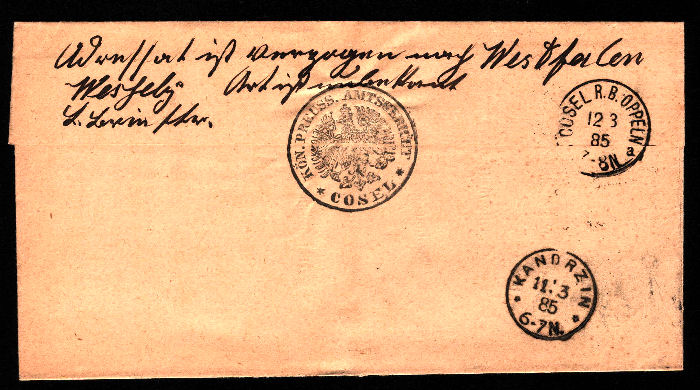 Adressat ist verzogen nach Westfalen
Ort ist unbekant
KÖN. PREUSS. AMTSGERICHT
* COSEL *
COSEL R.B. OPPELN
12 3
85
7-8N a
KANDRZIN
11.3
85
* 6-7N. *